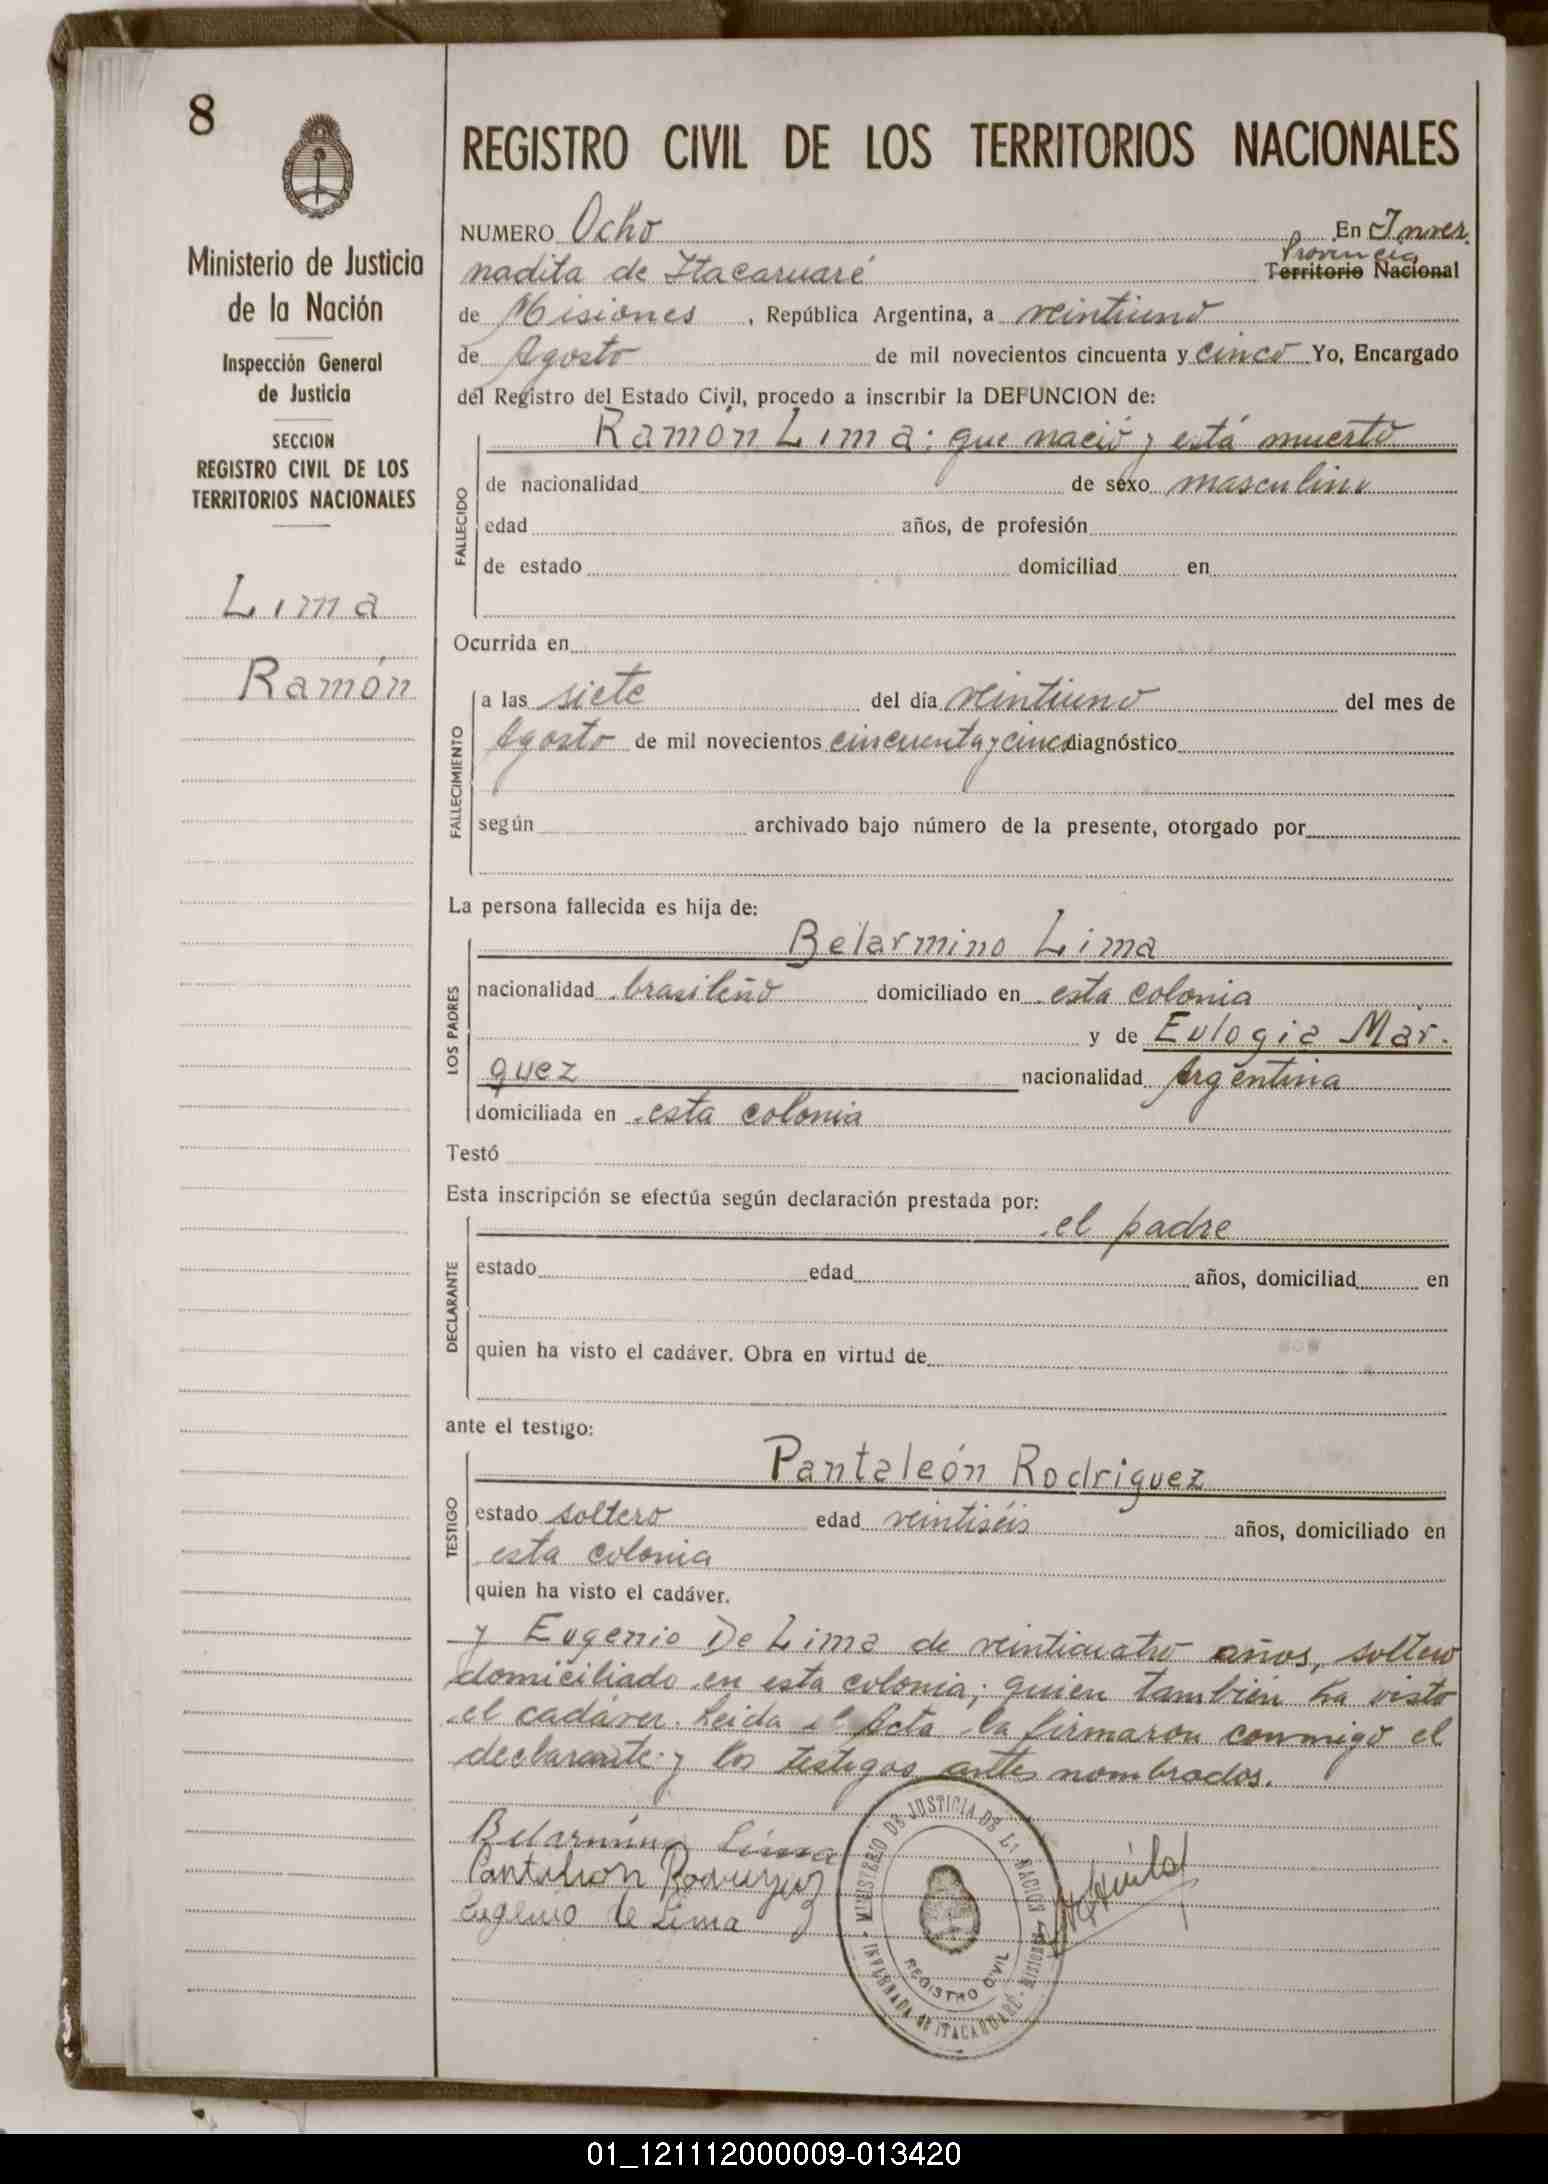 8
Ministerio de Justicia
de la Nación
Inspección General
de Justicia
SECCION
REGISTRO CIVIL DE LOS
TERRITORIOS NACIONALES
Lima
Ramón
REGISTRO CIVIL DE LOS TERRITORIOS NACIONALES
NUMERO Ocho En Inver
Provincia
nadita de Itacaruaré Territorio Nacional
de Misiones , República Argentina, a veintiuno
de Agosto de mil novecientos cincuenta y cinco Yo, Encargado
del Registro del Estado Civil, procedo a inscribir la DEFUNCION de:
FALLECIDO
Ramón Lima: que nació y está muerto
de nacionalidad de sexo masculino
edad años, de profesión
de estado domiciliad en
Ocurrida en
FALLECIMIENTO
a las siete del día veintiuno del mes de
Agosto de mil novecientos cincuenta y cinco diagnóstico
según archivado bajo número de la presente, otorgado por
La persona fallecida es hija de:
LOS PADRES
Belarmino Lima
nacionalidad brasileño domiciliado en esta colonia
y de Eulogia Már-
quez nacionalidad Argentina
domiciliada en esta colonia
Testó
Esta inscripción se efectúa según declaración prestada por:
DECLARANTE
el padre
estado edad años, domiciliad en
quien ha visto el cadáver. Obra en virtud de
ante el testigo:
TESTIGO
Pantaleón Rodriguez
estado soltero edad veintiséis años, domiciliado en
esta colonia
quien ha visto el cadáver.
y Eugenio De Lima de veinticuatro años, soltero
domiciliado en esta colonia; quien también ha visto
el cadáver. Leida el Acta la firmaron conmigo el
declarante: y los testigos antes nombrados.
Belarmino Lima
Pantaleon Rodriguez
Eugenio de Lima
MINISTERIO DE JUSTICIA DE LA NACION
REGISTRO CIVIL
INVERNADA DE ITACARUARÉ - MISIONES
01_121112000009-013420